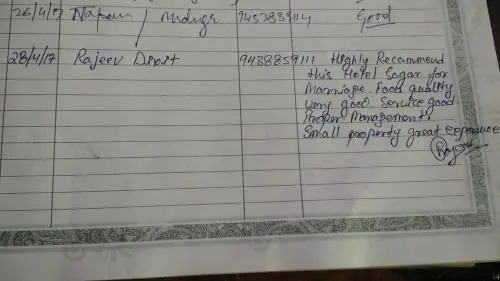 26/4/17 / 9457835114 Good
28/4/17 Rajeev Dixit 9438859111 Highly Recommend
this Hotel Sagar for
Marriage. Food quality
very good. Service good
Proper Management.
Small property great experience
Rajeev